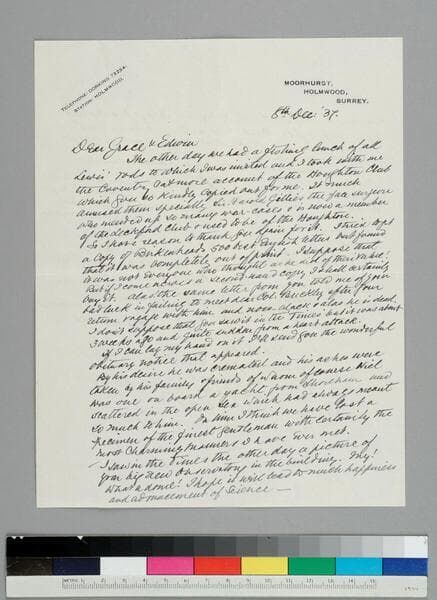 TELEPHONE: DORKING 73224.
STATION: HOLMWOOD.
MOORHURST,
HOLMWOOD,
SURREY.
8th Dec: '37.
Dear Grace & Edwin
The other day we had a fishing lunch of all
Lewis' rods to which I was invited and I took with me
the Coventry account of the Houghton Club
which you so kindly copied out for me. It much
amused them specially Sir Harold Gillies the face surgeon
who mended up so many war-cases & is now a member
of the Leckford Club & used to be of the Houghton.
So I have reason to thank you again for it. I tried to get
a copy of Birkenhead's 500 best English letters but found
that it was completely out of print. I suppose that
it was not everyone who thought as he did of their value!
But if I come across a second-hand copy I shall certainly
buy it. Alas the same letter from you told me of your
bad luck in failing to meet dear Col. Buckley after your
return voyage with him and now alack & alas he is dead.
I don't suppose that you saw it in the Times but it was about
3 weeks ago and quite sudden from a heart attack.
If I can lay my hand on it I'll send you the wonderful
obituary notice that appeared.
By his desire he was cremated and his ashes were
taken by his family & friends of whom of course Niel
was one on board a yacht from Shoreham and
scattered in the open Sea which had always meant
so much to him. In him I think we have lost a
specimen of the finest gentleman with certainly the
most charming manners I have ever met.
I saw in the Times the other day a picture of
your big new Observatory in the building. My!
What a dome! I hope it will lead to much happiness
and advancement of Science —